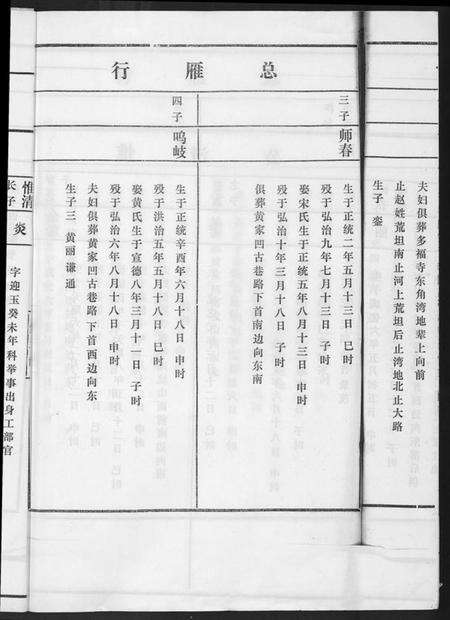 夫妇俱葬多福寺东角湾地辈上向前
止赵姓荒坦南止河上荒坦后止湾地北止大路
生子 銮
总雁行
三子 师春
生于正统二年五月十三日 巳时
殁于弘治九年七月十三日 子时
娶宋氏生于正统五年八月十三日 寅时
殁于弘治十年三月十八日 子时
俱葬黄家凹古巷路下首南边向东南
四子 鸣岐
生于正统辛酉年六月十八日 申时
殁于洪治五年五月十八日 巳时
娶黄氏生于宣德八年三月十一日 子时
殁于弘治六年八月十八日 申时
夫妇俱葬黄家凹古巷路下首西边向东
生子三 黄丽谦通
惟清
长子 炎
字迎玉癸未年科举事出身工部官